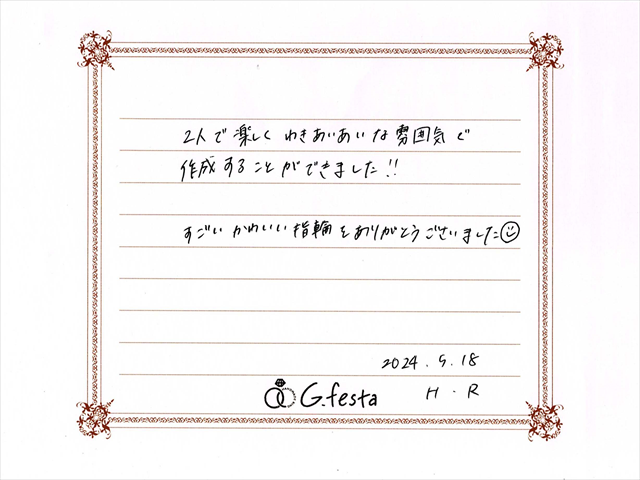 2人で楽しくわきあいあいな雰囲気で
作成することができました!!
すごいかわいい指輪をありがとうございました☺
2024.5.18
G.festa
H.R